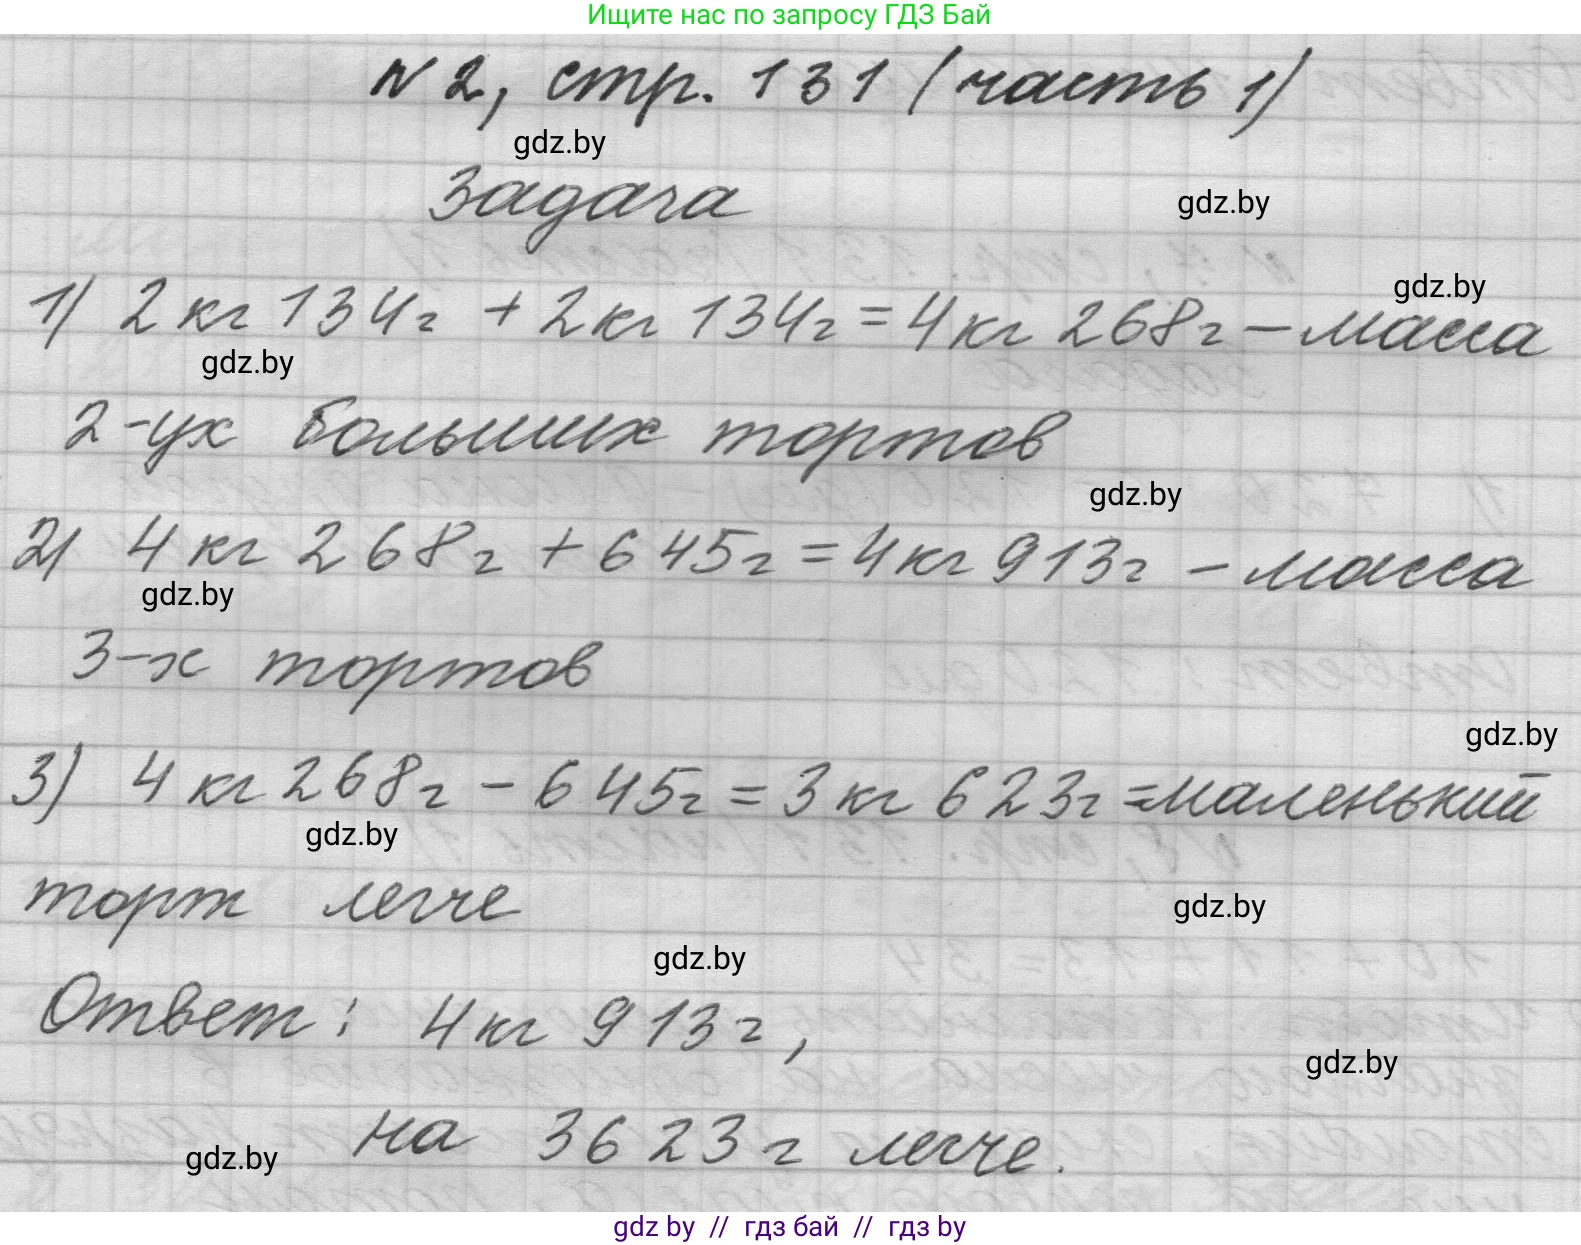 Ищите нас по запросу ГДЗ Бай
№ 2, стр. 131 (часть 1)
gdz.by
Задача
gdz.by
gdz.by
1) 2 кг 134г + 2кг 134г = 4кг 268г – масса
gdz.by
2-ух больших тортов
gdz.by
2) 4 кг 268г + 645г = 4кг 913г – масса
gdz.by
3-х тортов
gdz.by
3) 4 кг 268г – 645г = 3 кг 623г = маленький
gdz.by
торт легче
gdz.by
gdz.by
Ответ: 4кг 913г,
gdz.by
на 3623г легче.
gdz.by
gdz by // гдз бай // гдз by